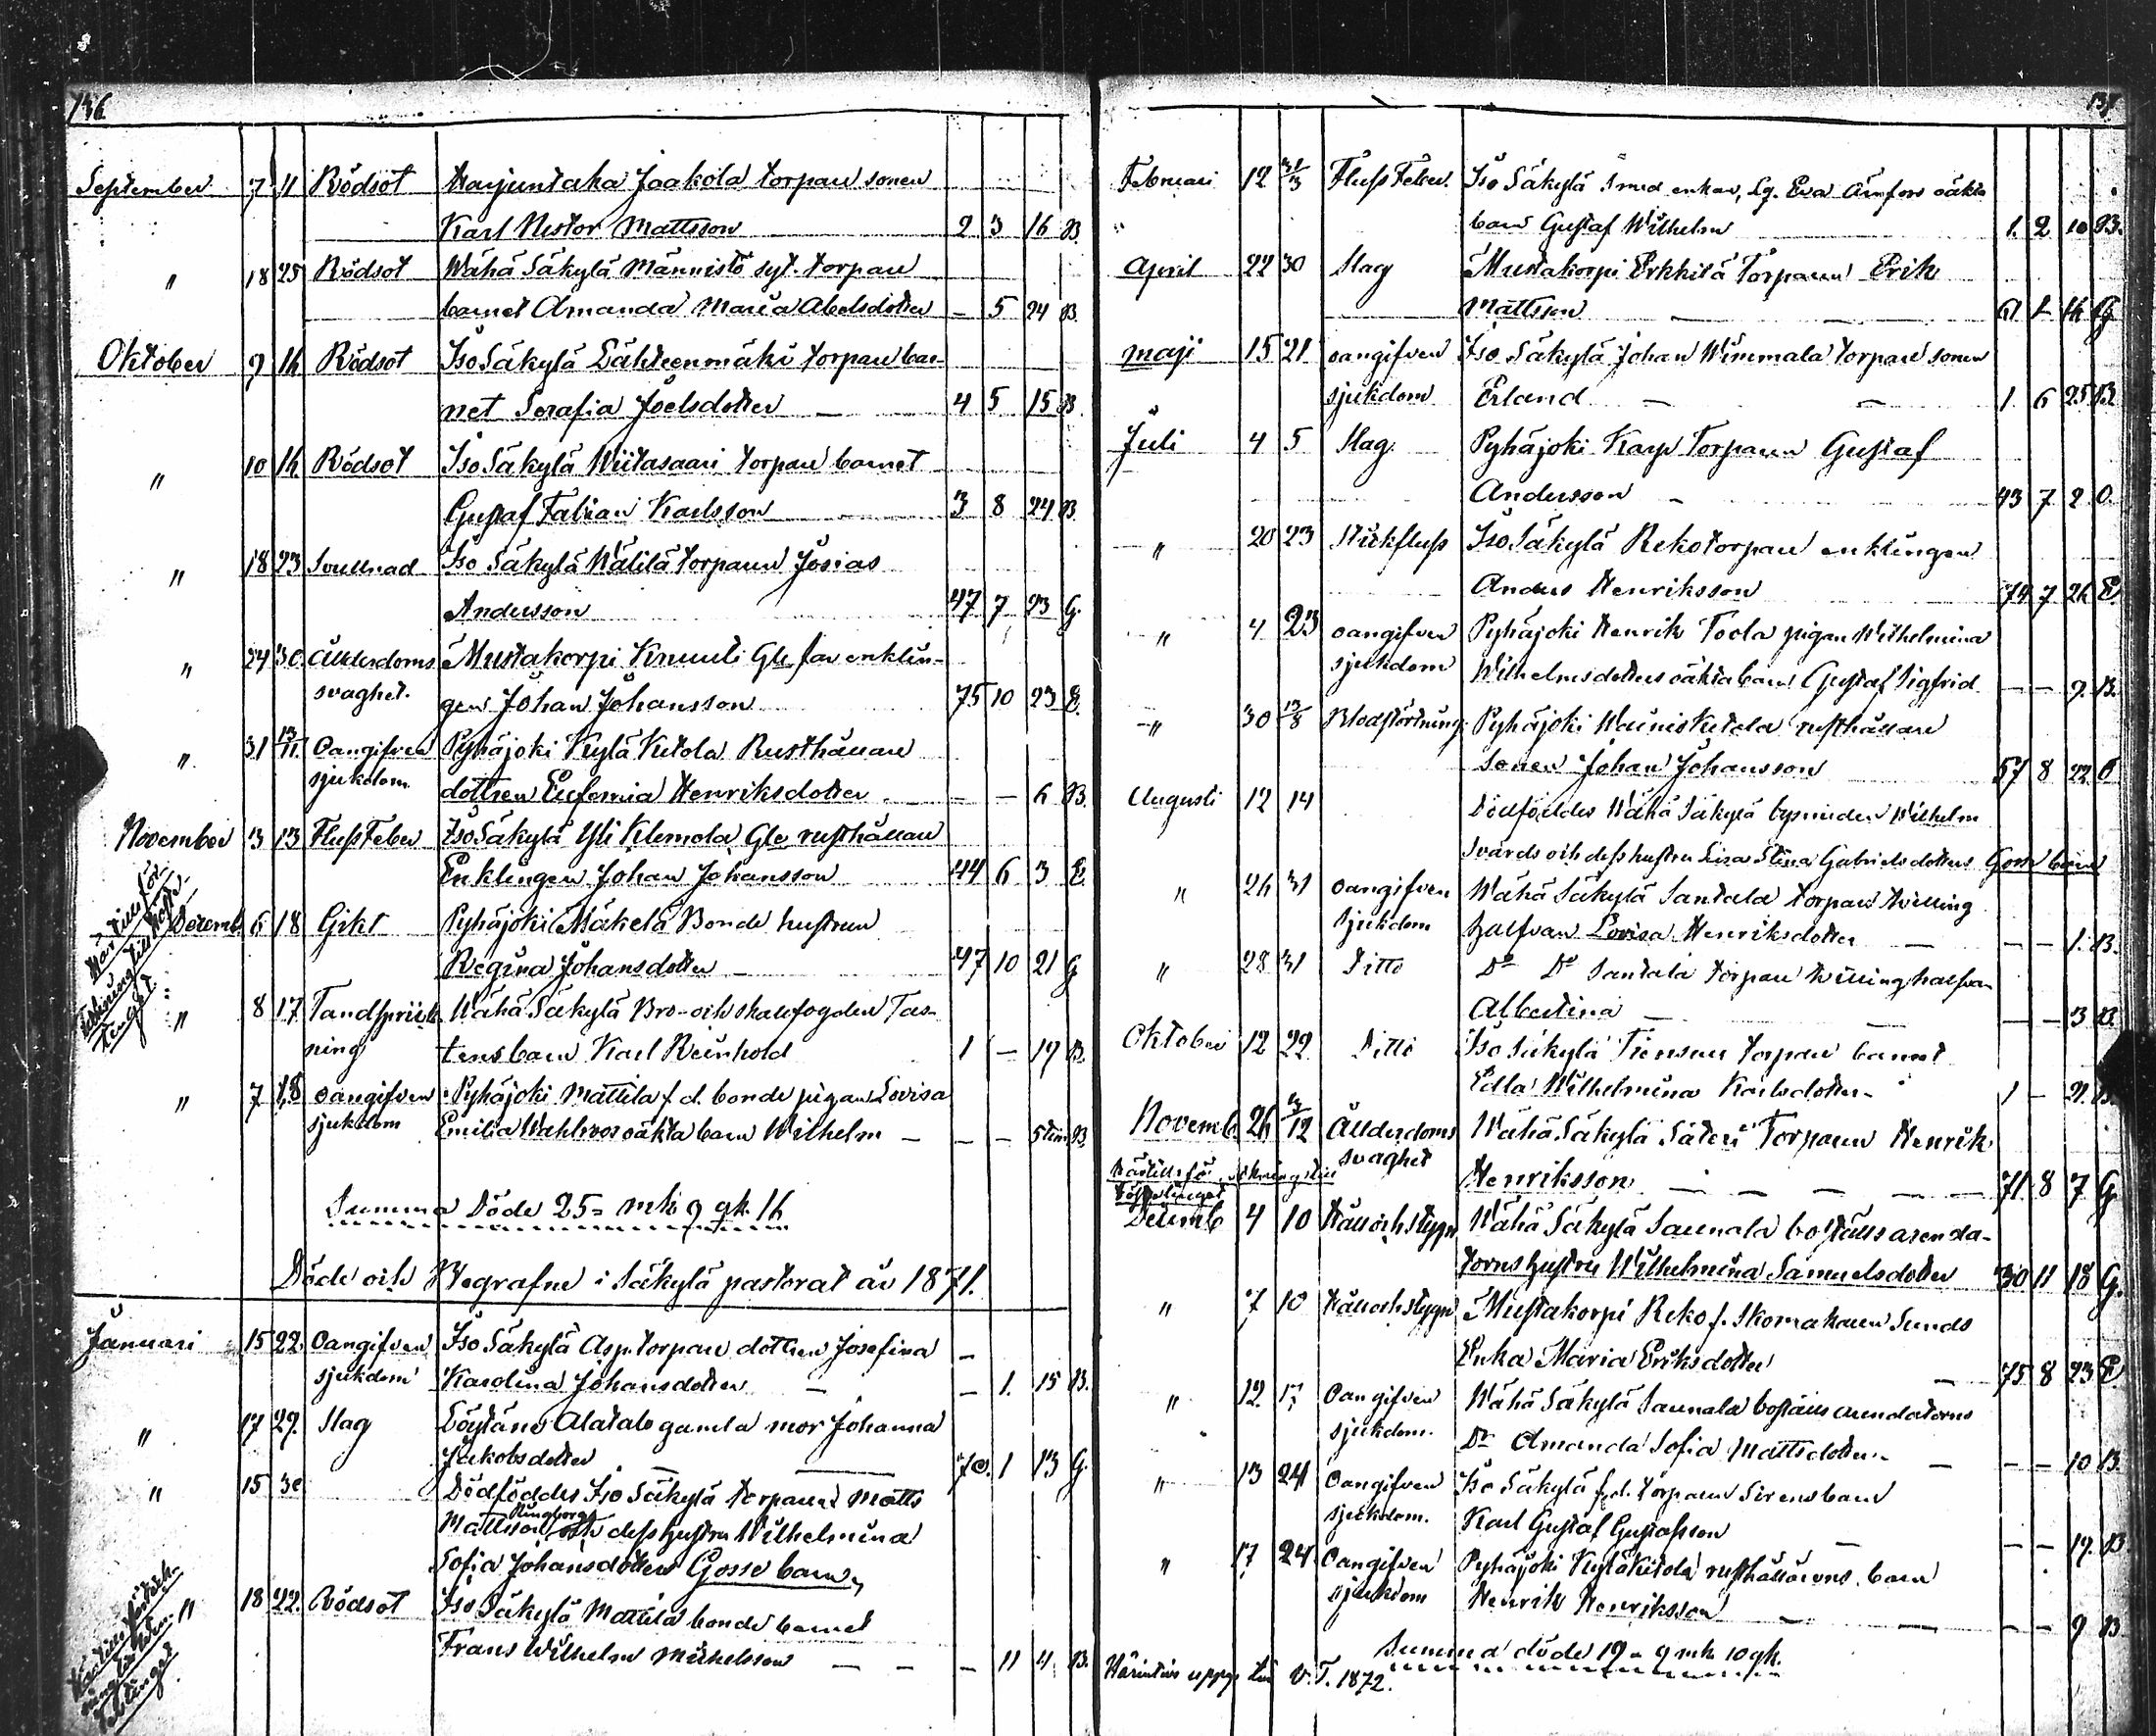 136
September 7 11 Rödsot Harjuntaka Jaakola torpare sonen
Karl Nestor Mattsson 2 3 16 B.
" 18 25 Rödsot Wähä Säkylä Männistö syt. torpare
barnet Amanda Maria Abelsdotter — 5 24 B.
Oktober 9 16 Rödsot Iso Säkylä Lähteenmäki torpare bar-
net Serafia Joelsdotter — 4 5 15 B
" 10 16 Rödsot Iso Säkylä Wiitasaari torpare barnet
Gustaf Fabian Karlsson 3 8 24 B
" 18 23 Svullnad Iso Säkylä Wälilä torparen Josias
Andersson 47 7 23 G.
" 24 30. Ålderdoms Mustakorpi Knuuti Gle far enklin-
svaghet. gen Johan Johansson 75 10 23 E.
" 31 13/11. Oangifven Pyhäjoki Kylä Kitola Rusthållare
sjukdom dottren Eufemia Henriksdotter — — 6 B.
November 3 13 Fluss Feber Iso Säkylä Yli Klemola Gle rusthållare
Enklingen Johan Johansson 44 6 3 E.
Decemb. 6 18 Gikt Pyhäjoki Mäkelä Bonde hustrun
Regina Johansdotter — 47 10 21 G
Här tills för-
teckning till Hofts-
tinget
" 8 17 Tandsprick- Wähä Säkylä Bro- och skallfogden Tas-
ning tens barn Karl Reinhold 1 — 19 B.
" 7 18 oangifven Pyhäjoki Mattila f. d. bonde pigan Lovisa
sjukdom Emilia Wahlroos oäkta barn Wilhelm — — — 5 tim B.
Summa Döde 25 = mk 9 qk. 16
Döde och Begrafne i Säkylä pastorat år 1871.
Januari 15 22. Oangifven Iso Säkylä Asp. torpare dottren Josefina
sjukdom Karolina Johansdotter — — 1. 15 B.
" 17 29. Slag Löytäne Alatalo gamla mor Johanna
Jakobsdotter — 70. 1 13 G.
" 15 30 Dödföddes Iso Säkylä torparen Matts
Mattsson Ringbergs och dess hustru Wilhelmina
Sofia Johansdotters Gosse barn,
" 18 22. Rödsot Iso Säkylä Mattila bonde barnet
Frans Wilhelm Mickelsson — — — 11 4. B.
137
Februari 12 31/3 Fluss Feber. Iso Säkylä Smed enkan, Eva oäkta
" barn Gustaf Wilhelm 1. 2 10 B.
April 22 30 Slag Mustakorpi Erkkilä Torparen Erik
Mattsson — — 61 1 16 G
maji 15 21 oangifven Iso Säkylä Johan Wimmala torpare sonen
sjukdom Erland — — 1. 6 25 B.
Juli 4 5 Slag Pyhäjoki Karp Torparen Gustaf
Andersson — 43 7 2 O.
" 20 23 Stickfluss Iso Säkylä Reko torpare enklingen
Anders Henriksson 74 7 26 E.
" 4 23 oangifven Pyhäjoki Henrik Toola pigan Wilhelmina
sjukdom Wilhelmsdotters oäkta barn Gustaf Sigfrid — — 9 B.
" 30 13/8 Blodstörtning Pyhäjoki Wainio Kitola rusthållare
sonen Johan Johansson 57 8 22 O
Augusti 12 14 Dödföddes Wähä Säkylä bysmeden Wilhelm
Svärds och dess hustru Lisa Stina Gabrielsdotters Gosse barn
" 26 31 oangifven Wähä Säkylä Santala torpare tvilling
sjukdom halfvan Lovisa Henriksdotter — — — 1. B.
" 28 31 Ditto Do Do Santala torpare tvilling halfvan
Albertina — — — — 3 B.
Oktober 12 22 Ditto Iso Säkylä torpare barnet
Edla Wilhelmina Karlsdotter 1 — 21. B.
Novemb. 26 3/12 Ålderdoms Wähä Säkylä Säteri Torparen Henrik
svaghet Henriksson — — — — 71 8 7 G.
Här tills förteckning till
Höstetinget
Decemb 4 10 Håll och stygn Wähä Säkylä Saunala boställs arenda-
torns hustru Wilhelmina Samuelsdotter 30 11 18 G.
" 7 10 Håll och stygn Mustakorpi Reko f. Skomakaren Sunds
Enka Maria Eriksdotter — 75 8 23 E.
" 12. 17 Oangifven Wähä Säkylä Saunala boställs arendatorns
sjukdom. Dr Amanda Sofia Mattsdotter — — — 10 B.
" 13 24 Oangifven Iso Säkylä f. d. torparen Sirens barn
sjukdom. Karl Gustaf Gustafsson — — — 19. B.
" 17 24 Oangifven Pyhäjoki Kylä Kitola rusthållarens barn
sjukdom Henrik Henriksson — — — — 9 B
Summa döde 19 = 9 mk 10 qk.
Härintills uppg. till V. T. 1872.